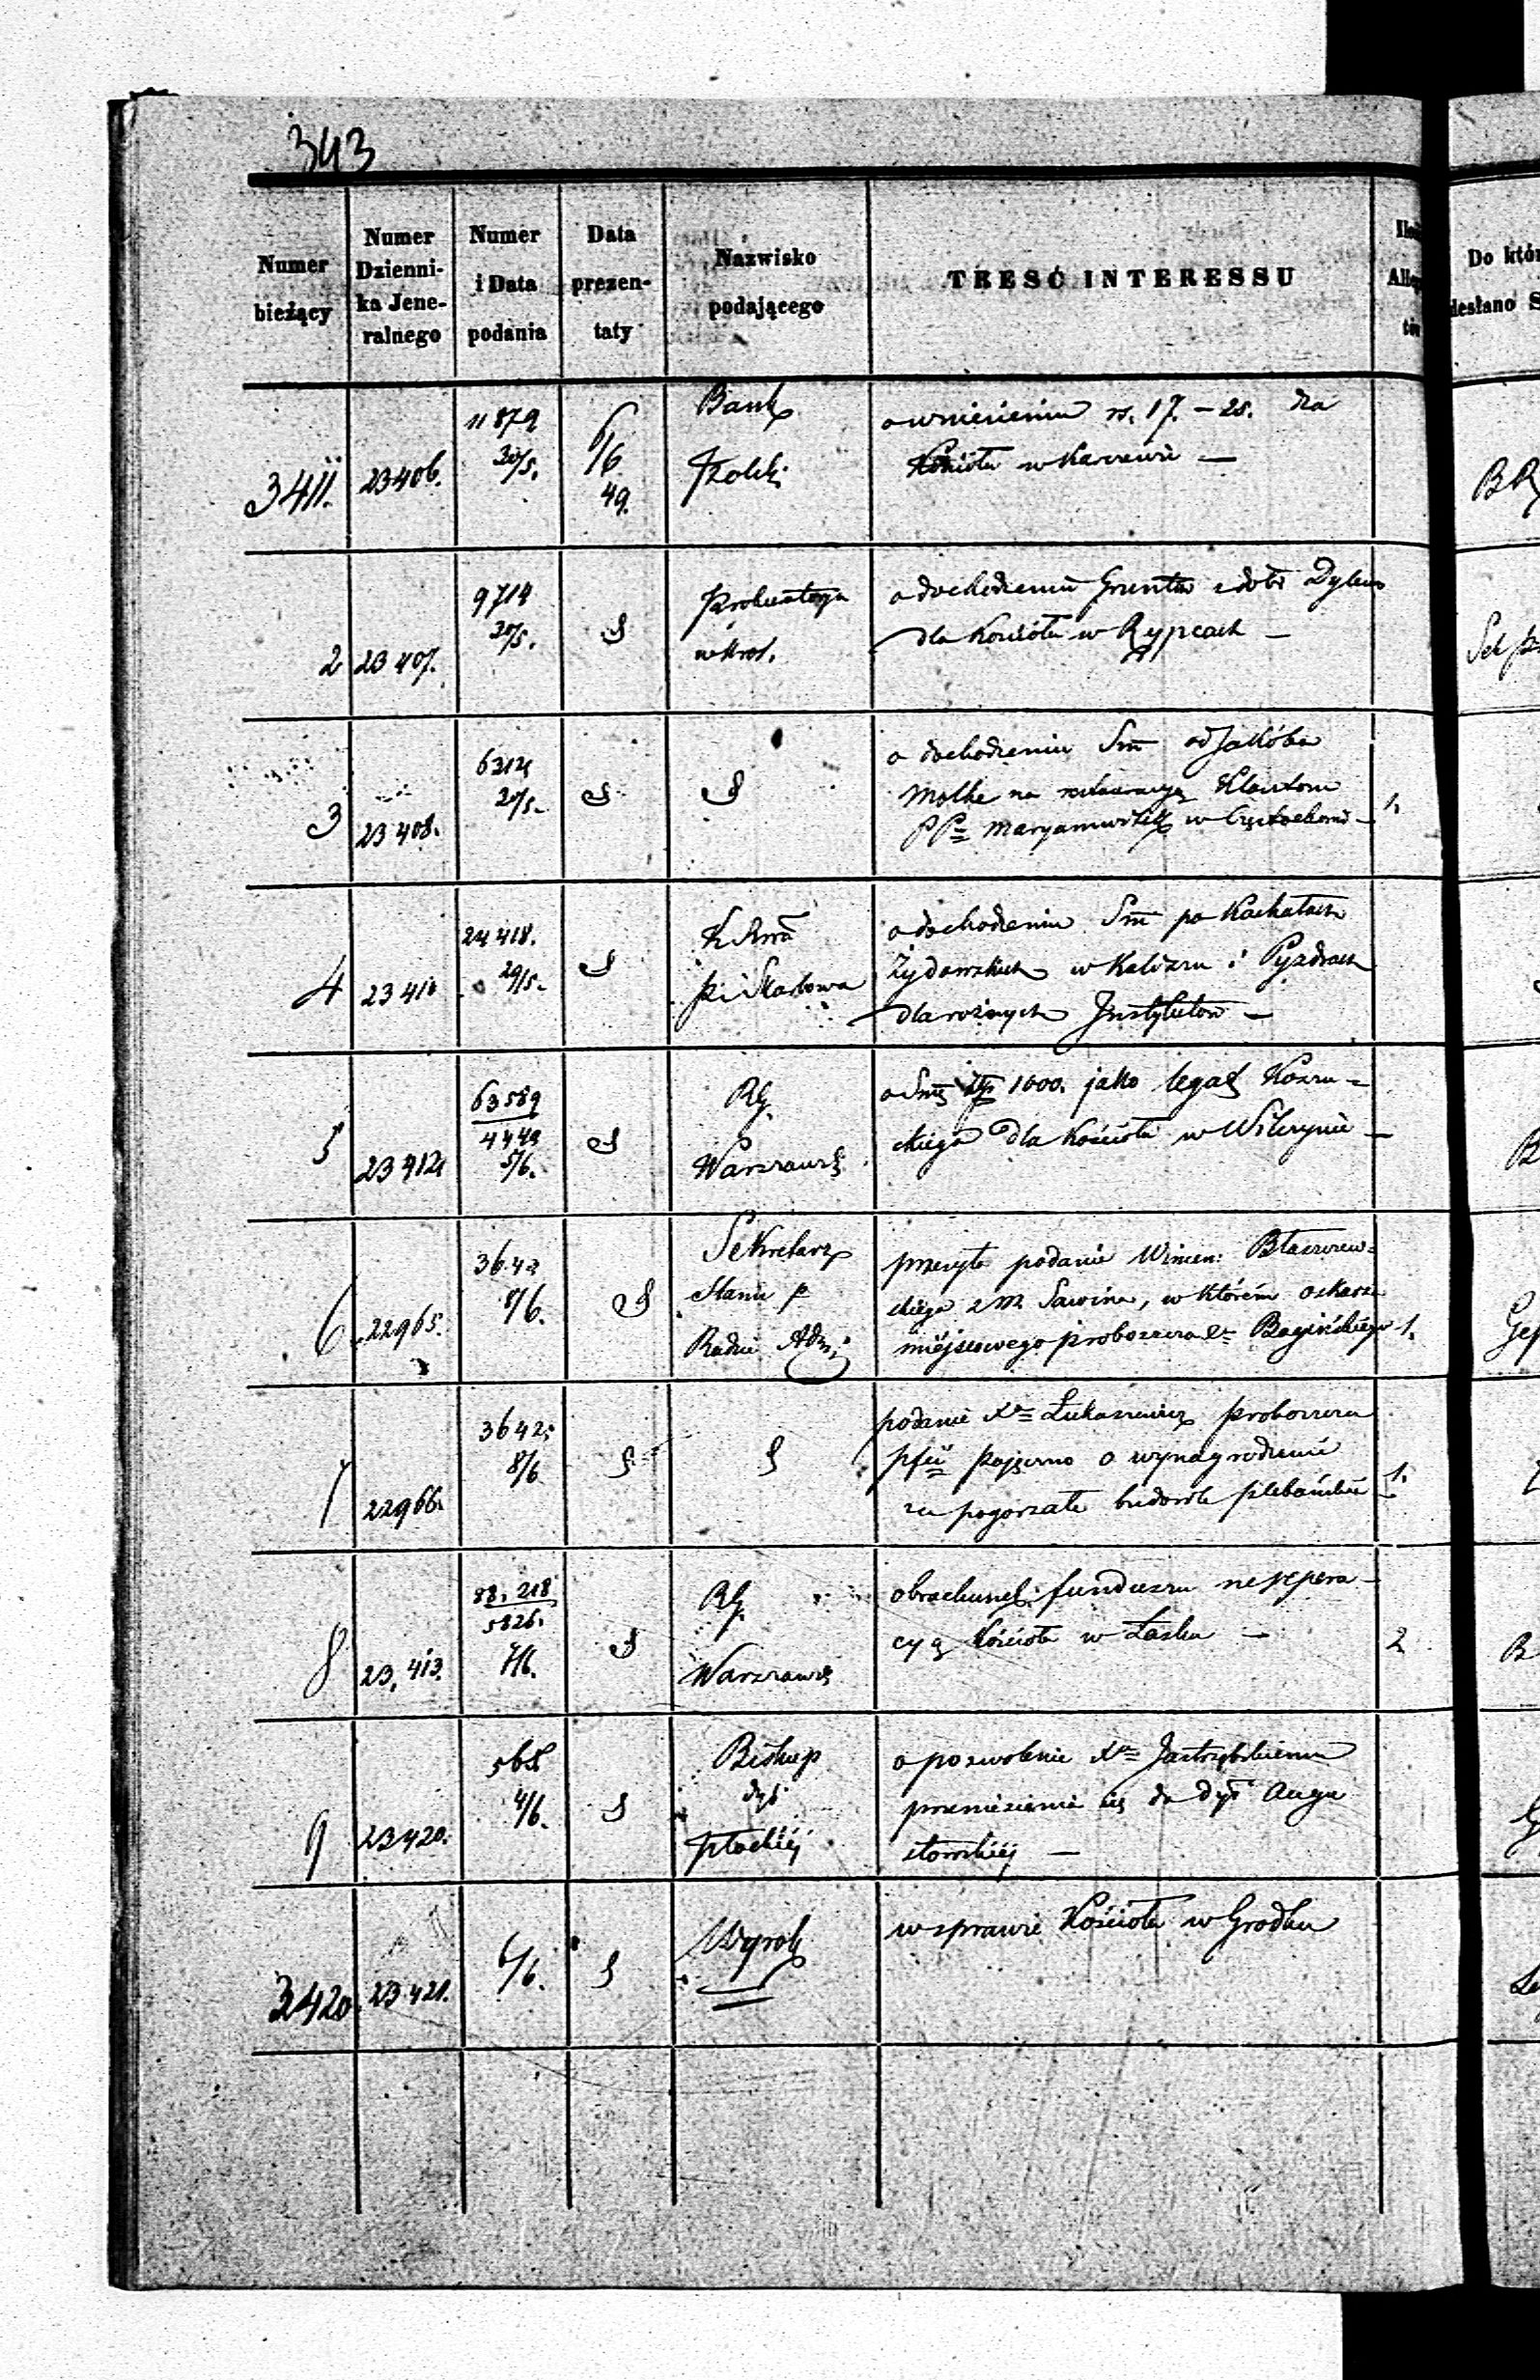 343
Numer bieżący
Numer Dzienni-
ka Jene-
ralnego
Numer
i Data
podania
Data
prezen-
taty
Nazwisko
podającego
TREŚĆ INTERESSU
Do któr
desłano S
3411. 23406. 11879 30/5. 6/6 49.
Bank
Polski
o wniesieniu rs. 17. – 25. dla
Kościoła w Karczewie —
2 23407. 9714 20/5.
Prokuratorya
w Król.
o dochodzeniu Gruntów z dóbr
dla Kościoła w Rypcach —
3 23408. 20/5.
o dochodzeniu Sm od Jakóba
Molke na restauracyą Klasztoru
PP= Maryawitek w Częstochowie — 1.
4 24418. 29/5.
P. i Skarbowa
o dochodzeniu Sm po Kachałach
Żydowskich w Kaliszu i Pyzdrach
dla różnych Instytutów —
5 23412 63589 4449 5/6.
RG.
Warszaws
1000. jako legat
ckiego dla Kościoła w Wilczynie —
6 22965. 3642 8/6.
Sekretarz
Stanu p
Radzie Adm:
przesyła podanie Wincen: Błaszczew=
skiego z M Sawina, w którém oskarża
miéjscowego proboszcza Bagińskiego 1.
7 22966. 3642. 8/6
podanie Xa= Łukasiewicz proboszcza
o wynagrodzenie
za pogorzałe budowle plebańskie 1.
8 23,413. 88,218 5826. 7/6.
RG.
Warszaws
obrachunek funduszu na repera-
cyą Kościoła w Łasku — 2
9 23420. 568 4/6.
Biskup
dyé
Płockiéj
o pozwolenie Xa= Jastrzębskiemu
przeniesienia się do dyé Augu
stowskiéj —
3420 23421. 6/6.
Wyrok
w sprawie Kościoła w Grodku